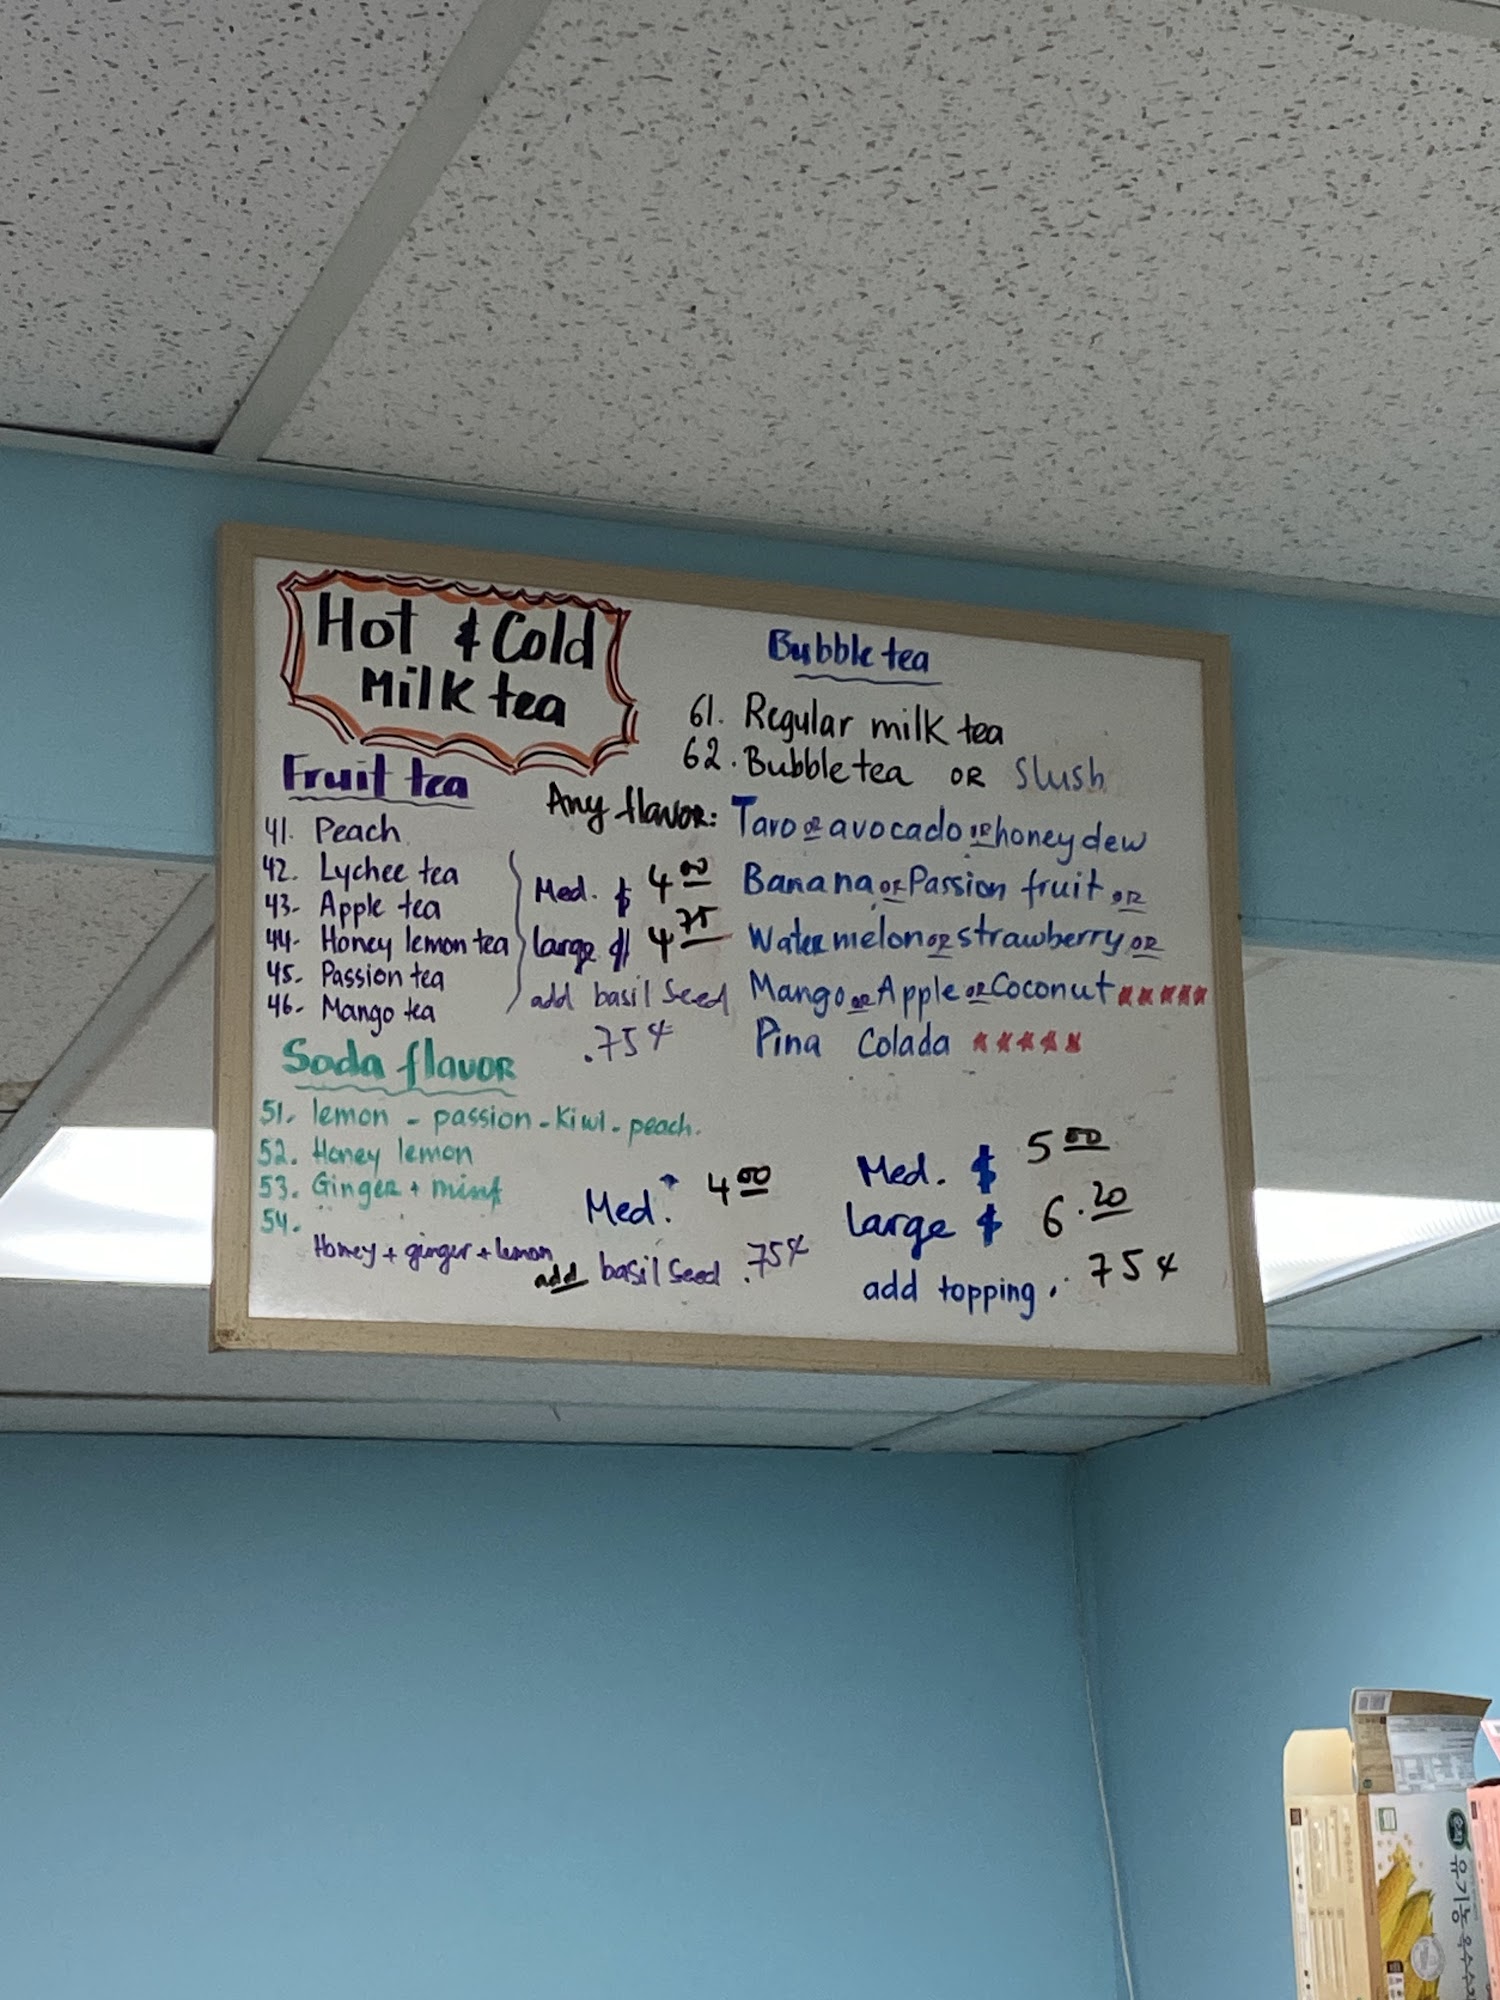 Hot & Cold
Milk tea
Fruit tea
41. Peach
42. Lychee tea
43. Apple tea
44. Honey lemon tea
45. Passion tea
46. Mango tea
Med. $ 4.00
large $ 4.75
add basil seed
.75¢
Soda flavor
51. lemon - passion - kiwi - peach.
52. Honey lemon
53. Ginger + mint
54.
Honey + ginger + lemon
Med. 4.00
add basil seed .75¢
Bubble tea
61. Regular milk tea
62. Bubble tea OR Slush
Any flavor: Taro or avocado or honey dew
Banana or Passion fruit or
Water melon or strawberry or
Mango or Apple or Coconut *****
Pina Colada *****
Med. $ 5.00
large $ 6.20
add topping .75¢
유기농 옥수수